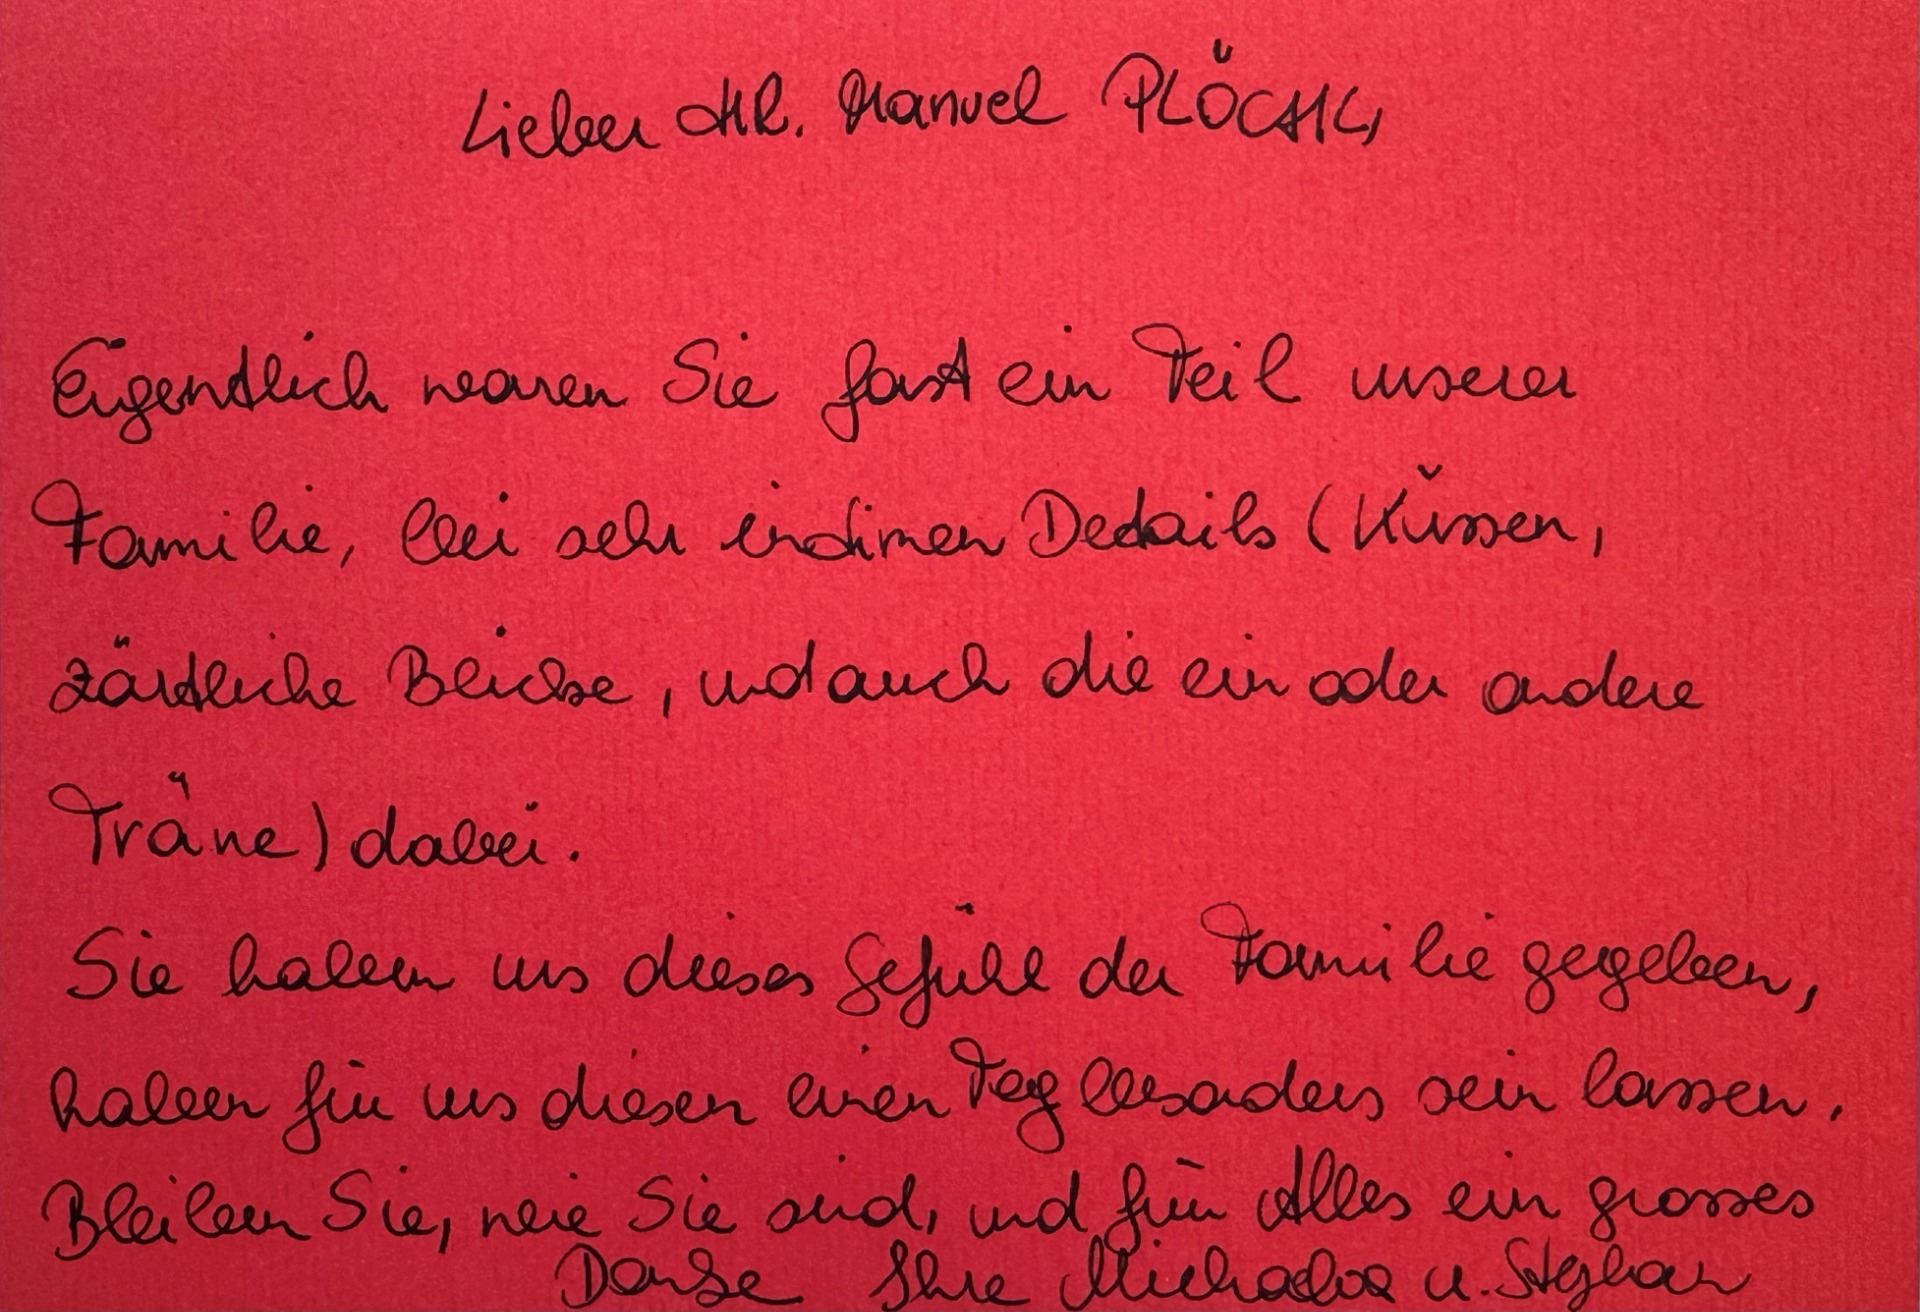 Lieber Hr. Manuel PLÖCHL,
Eigentlich waren Sie fast ein Teil unserer
Familie, bei sehr intimen Details (Küssen,
zärtliche Blicke, und auch die ein oder andere
Träne) dabei.
Sie haben uns dieses Gefühl der Familie gegeben,
haben für uns diesen einen Tag besonders sein lassen.
Bleiben Sie, wie Sie sind, und für Alles ein grosses
Danke Ihre Michaela u. Stephan